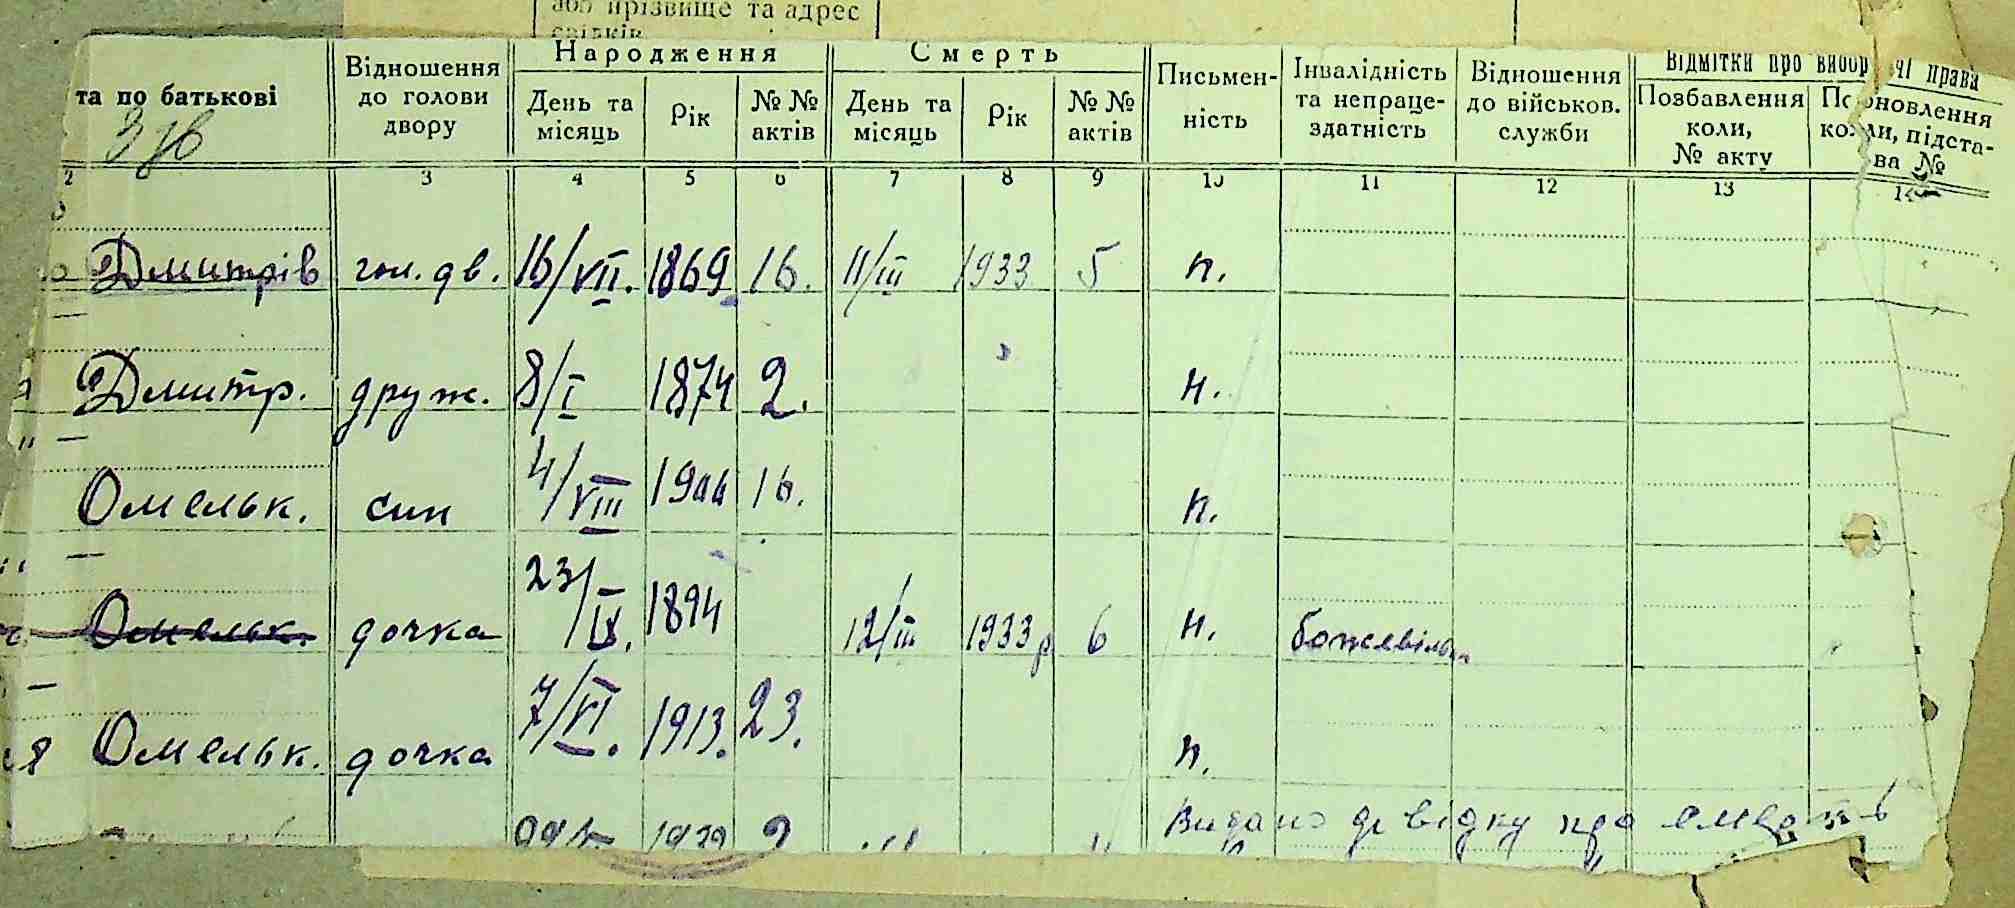 або прізвище та адрес
свідків
Народження Смерть Відмітки про виборчі права
та по батькові Відношення до голови двору День та місяць Рік №№ актів День та місяць Рік №№ актів Письменність Інвалідність та непрацездатність Відношення до військов. служби Позбавлення коли, № акту Поновлення коли, підстава №
2 3 4 5 6 7 8 9 10 11 12 13 14
Дмитрів гол. дв. 16/VII. 1869 16. 11/III 1933 5 п.
Дмитр. друж. 8/I 1874 2. н.
Омельк. син 4/VIII 16. п.
Омельк. дочка 23/IX. 1894 12/III 1933 р 6 н. божевільн
я Омельк. дочка 7/VI. 1913. 23. п.
Видано довідку про смерть